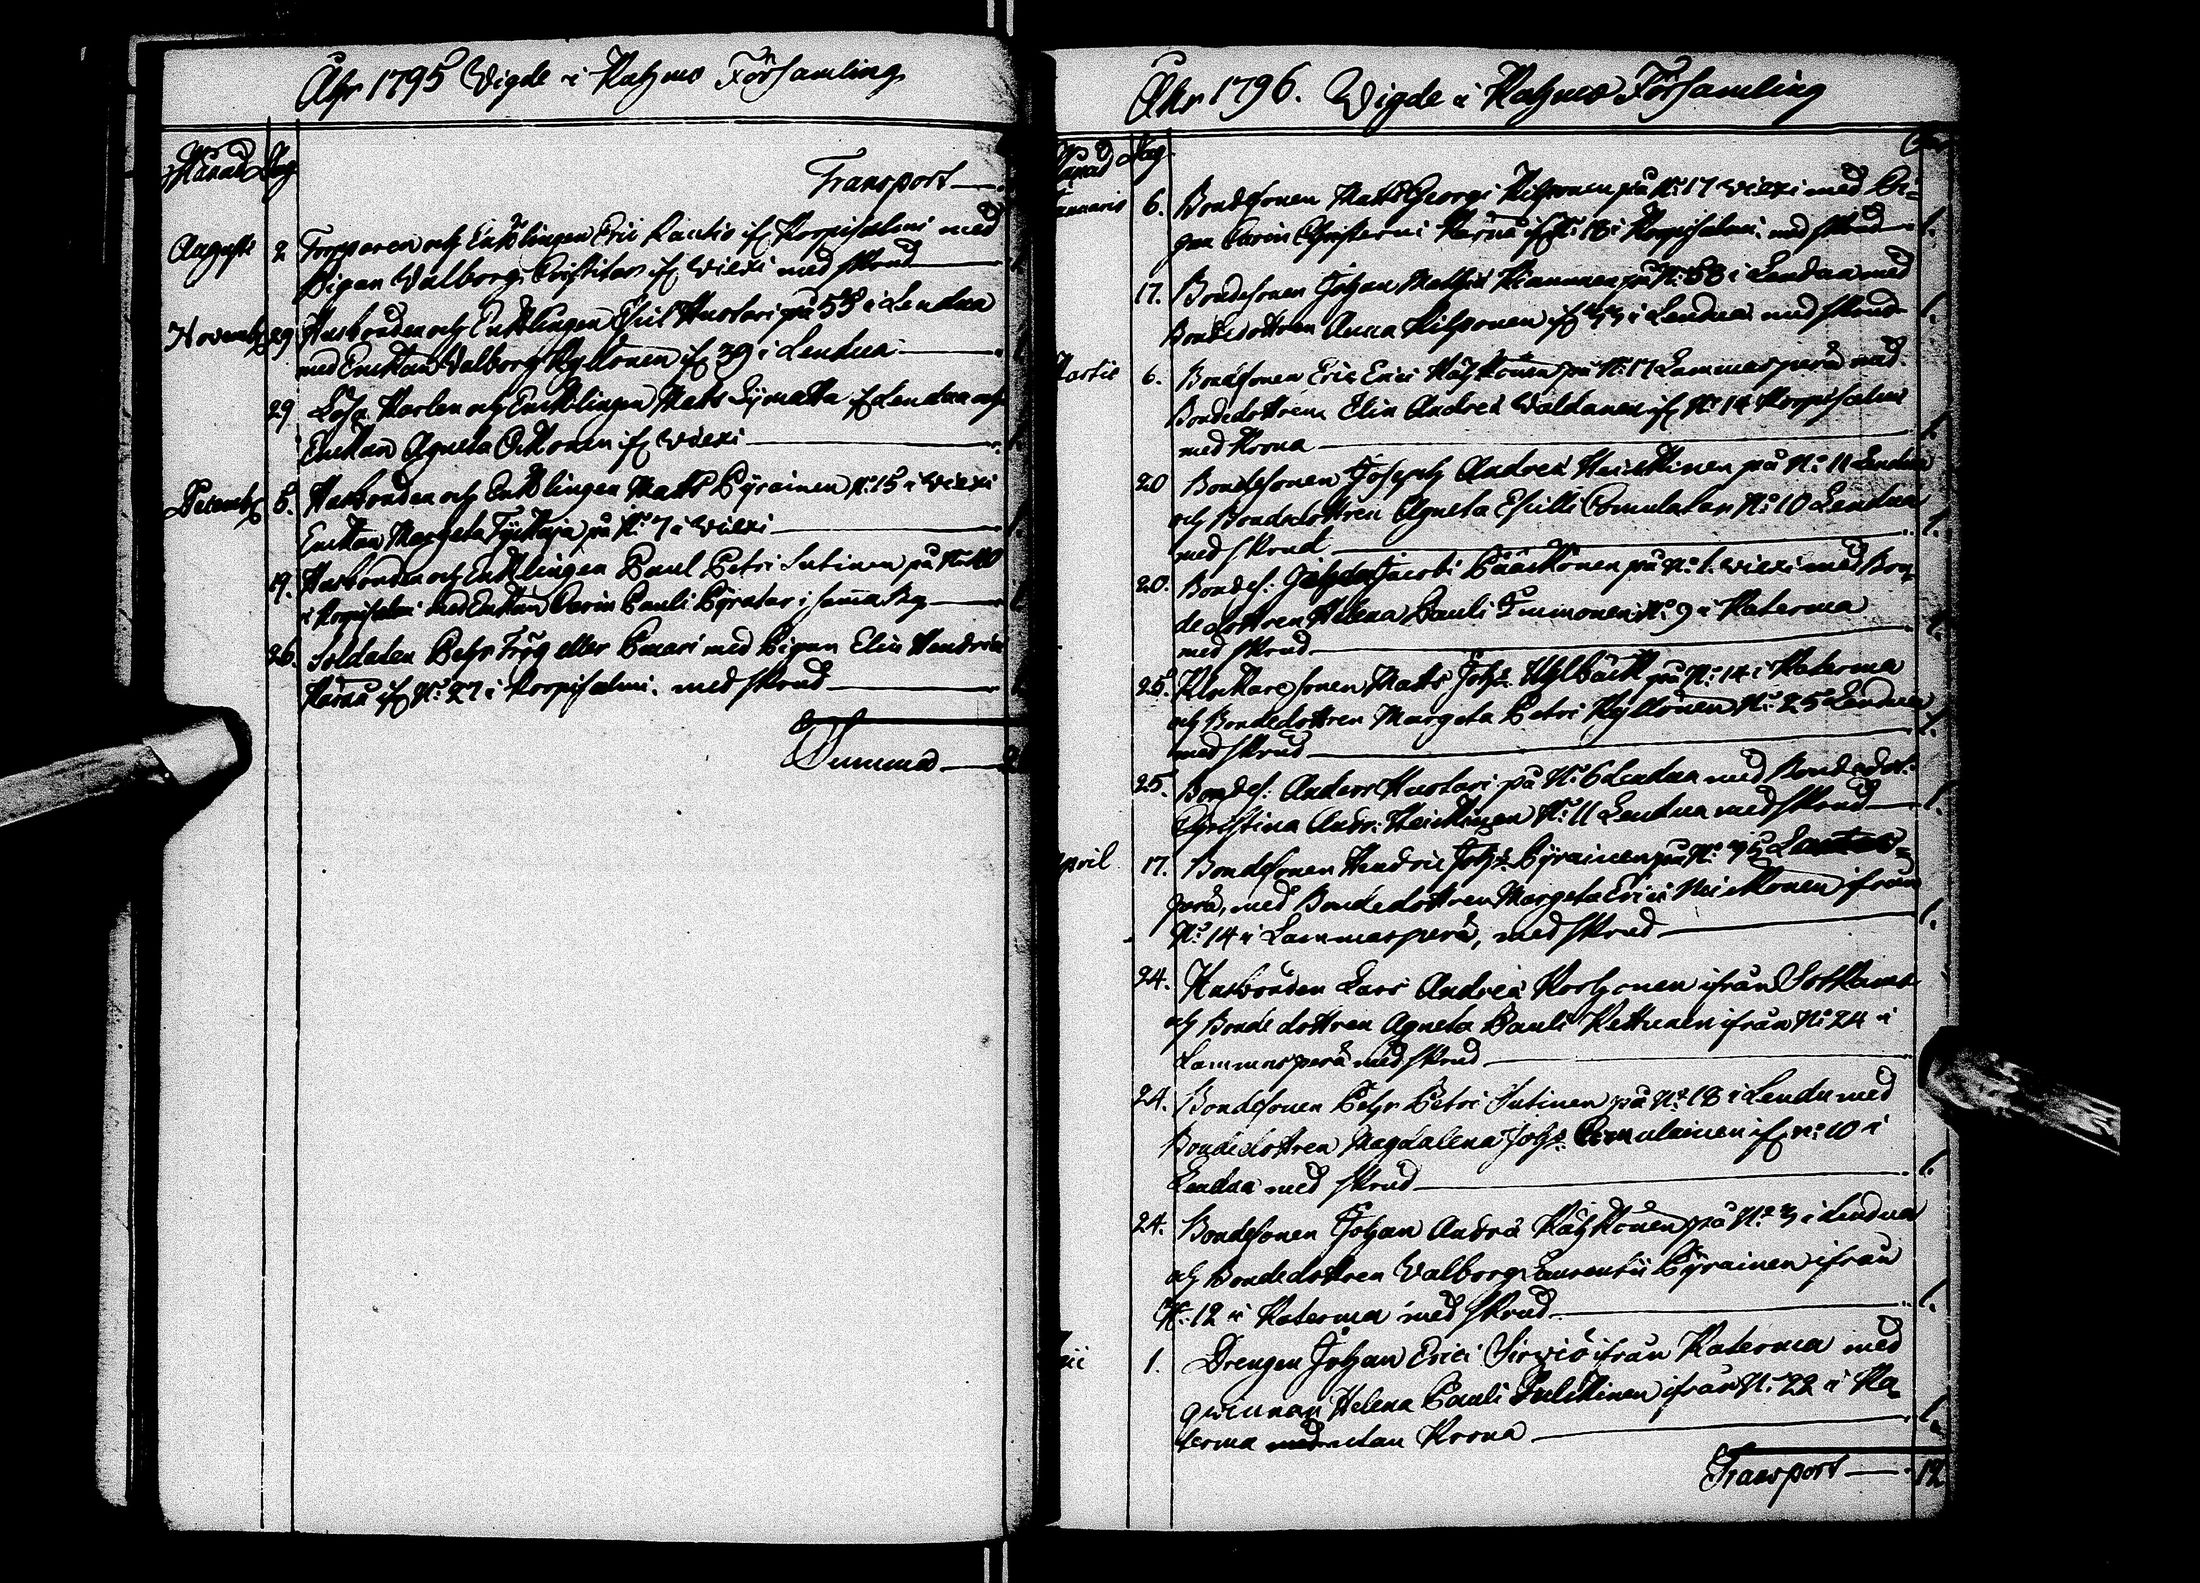 Åhr 1795 Vigde i Kuhmo Församling
Månad Dag
Transport
Augusti 2 Torpparen och Enklingen Eric Rautio if. Korpisalmi med
Pigan Valborg if. Wiexi med skrud
Novembr 29 Husbonden och Enklingen Esil Huotari på 53 i Lendua
med Enckan Valborg Kyllönen if. 39 i Lendua
29 Enklingen Mats if. Lendua och
Enckan Agneta if. Wiexi
Decembr 6. Husbonden och Enklingen Matts Pyrainen N:15 i Wiexi
Enckan Margeta på N:o 7 i Wiexi
19. Husbonden och Enklingen Paul Petri Sutinen på N:o 40
i Korpisalmi med Enckan Carin Pauli i samma By
26. Soldaten Pehr Trög eller med Pigan Elin Hendrici
Kärnä if. N:o 27 i Korpisalmi. med skrud
Summa
Åhr 1796. Wigde i Kuhmo Församling
Månad Dag
Januarii 6. Bondesonen Matts Georgi Kilponen på N:o 17 Wiexi med Pi-
gan Carin Christerni Kärnä if. N: 18 i Korpisalmi. med skrud 1.
17. Bondesonen Johan Mathiæ på N:o 58 i Lendua med
Bondedottren Anna Kilponen if. i Lendua med skrud 1.
Martii 6. Bondesonen Eric Erici Häyhönen på N:o 17 Lammasperä med
Bondedottren Elin Andreæ Waldanen if. N:o 14 Korpisalmi
med Krona 1.
20 Bondesonen Joseph Andreæ Heickinen på N:o 11 Lendua
och Bondedottren Agneta Eskilli Comulatar N:o 10 Lendua
med skrud 1.
20. Bondes: Jacobi Pääskönen på N:o 1. Wiexi med Bon-
dedottren Helena Pauli Immonen N:o 9 i Katerma
med skrud 1.
25. Klockaresonen Matts Joh:s Uhlbäck på N:o 14 i Katerma
och Bondedottren Margeta Petri Kyllönen N:o 25 Lendua
med skrud 1.
25. Bondes: Anders Huotari på N:o 6 Lendua med Bondedot:
Christina Andr: Heickinen N:o 11 Lendua med skrud 1.
April 17. Bondesonen Hendric Joh:s Pyrainen på N:o
perä, med Bondedottren Margeta Erici ifrån
N:o 14 i Lammasperä, med skrud 1.
24. Husbonden Lars Andreæ Korhonen ifrån Sotkamo
och Bondedottren Agneta Pauli Kettunen ifrån N:o 24 i
Lammasperä med skrud
24. Bondesonen Pehr Petri Sutinen på N:o 18 i Lendu med
Bondedottren Magdalena Joh:s Comulainen if. N:o 10 i
Lendua med skrud 1.
24. Bondesonen Johan Andreæ Häyhönen på N:o 3 i Lendua
och Bondedottren Valborg Laurentii Pyrainen ifrån
N: 12 i Katerma med skrud 1.
1. Drengen Johan Erici Sirviö ifrån Katerma med
qwinnan Helena Pauli Pulckinen ifrån N: 22 i Ka-
terma med utan Krona 1.
Transport 12